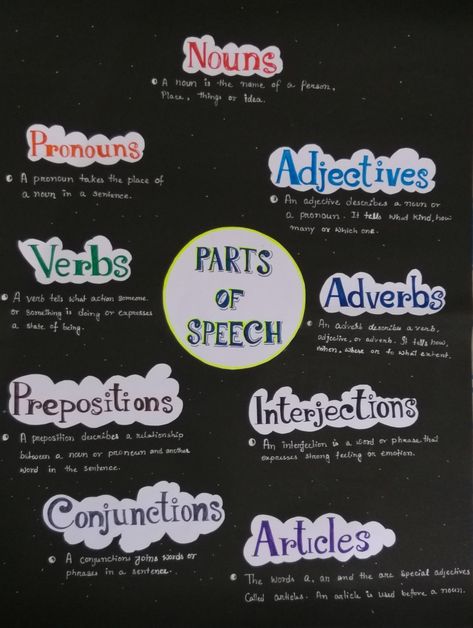 Nouns
A noun is the name of a person,
Place, things or idea.
Pronouns
A pronoun takes the place of
a noun in a sentence.
Adjectives
An adjective describes a noun or
a pronoun. It tells what kind, how
many or which one.
Verbs
A verb tells what action someone
or something is doing or expresses
a state of being.
PARTS
OF
SPEECH
Adverbs
An adverb describes a verb,
adjective, or adverb. It tells how,
when, where or to what extent.
Prepositions
A preposition describes a relationship
between a noun or pronoun and another
word in the sentence.
Interjections
An interjection is a word or phrase that
expresses strong feeling or emotion.
Conjunctions
A conjunctions joins words or
phrases in a sentence.
Articles
The words a, an and the are special adjectives
Called articles. An article is used before a noun.